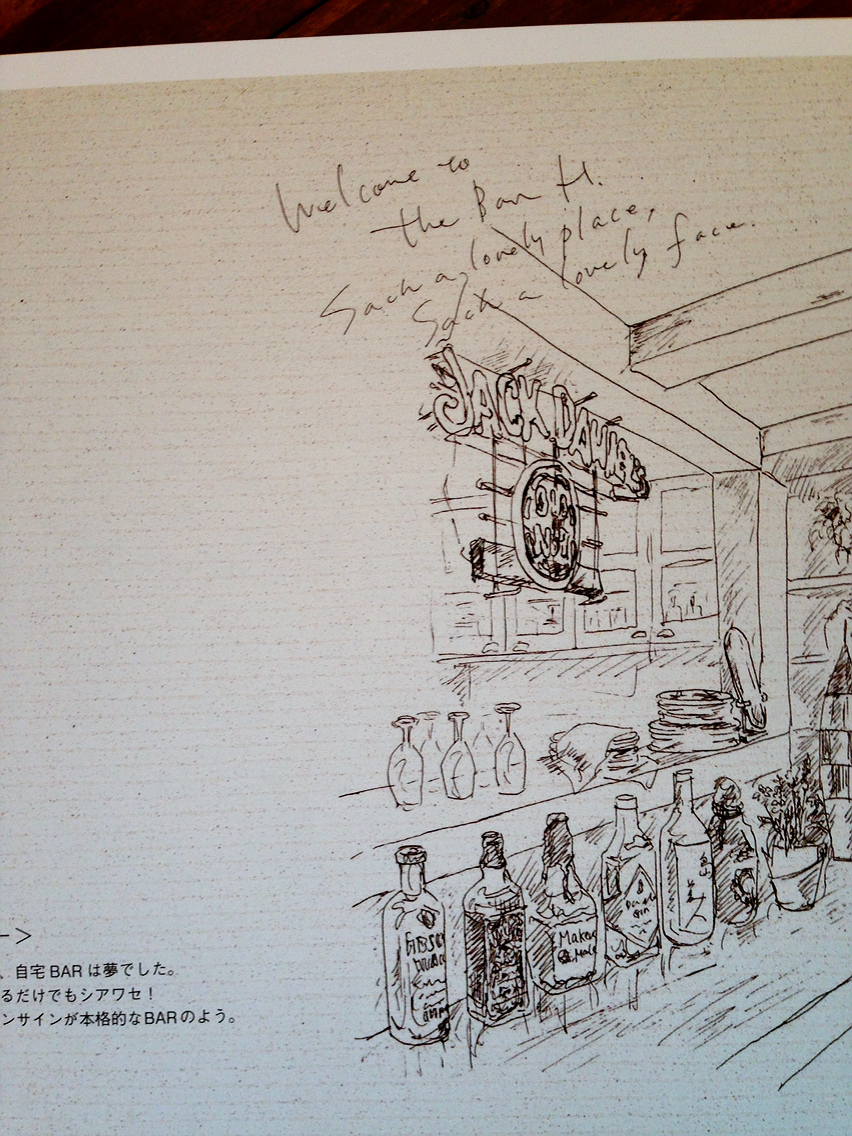 Welcome to
the Bar H.
Such a lovely place,
Such a lovely face.
JACK DANIEL'S
OLD
NO.7
GIBSON
Maker's
Mark
Gin
ー>
、自宅BARは夢でした。
るだけでもシアワセ！
ンサインが本格的なBARのよう。